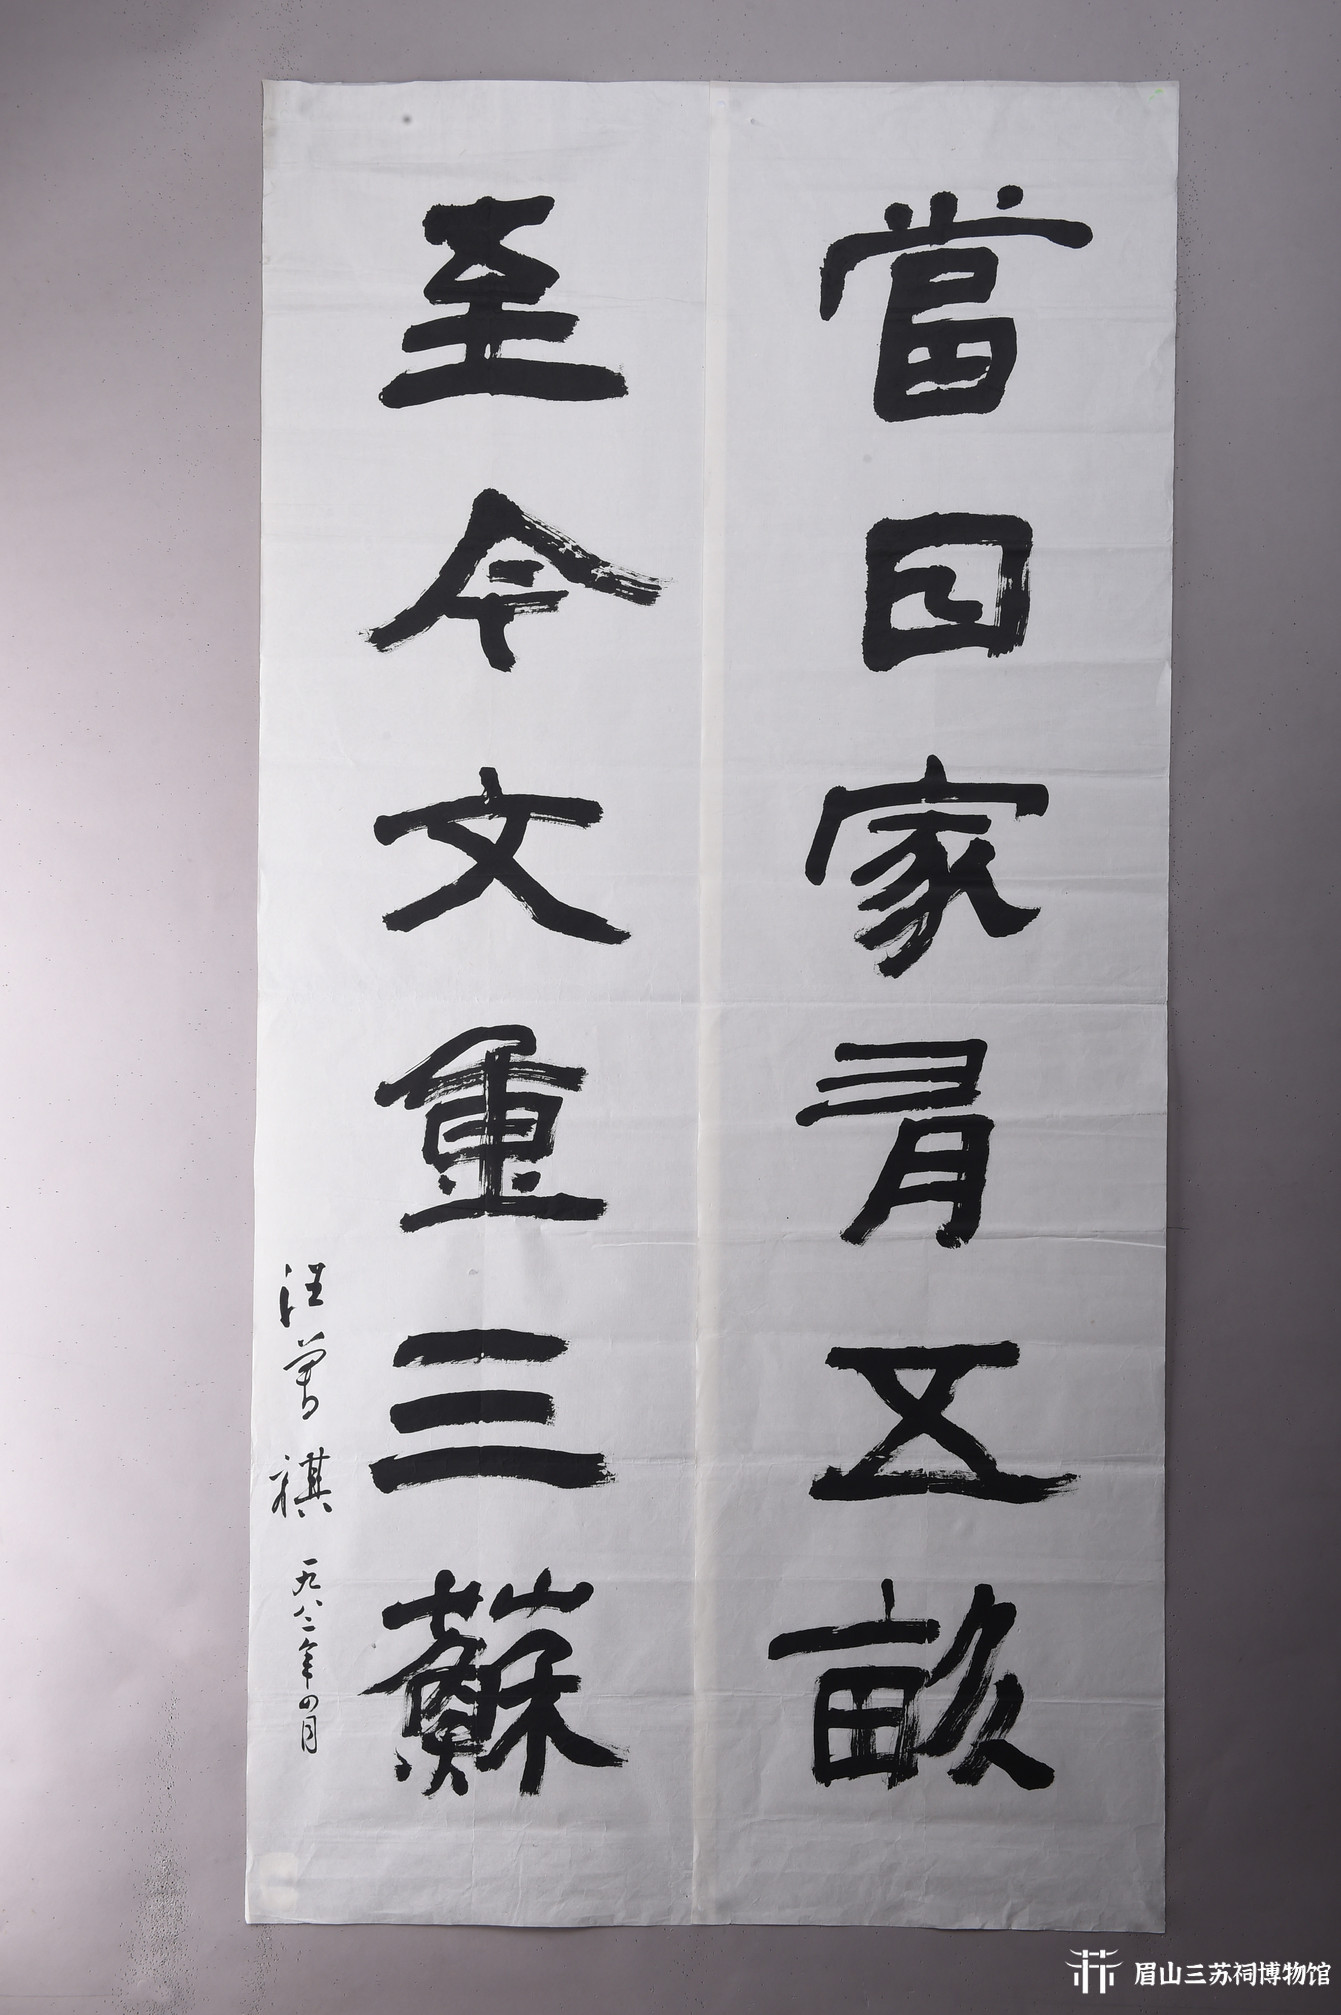 當日家有五畝
至今文重三蘇
汪曾祺 一九八二年四月
眉山三苏祠博物馆